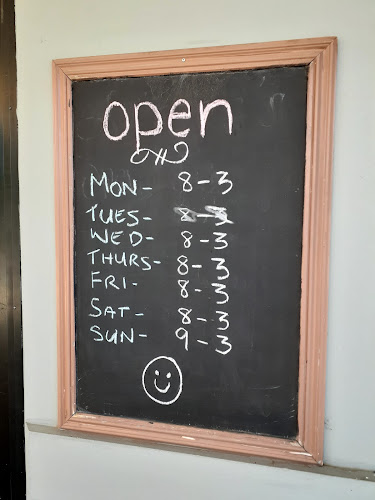 open
MON- 8-3
TUES- 8-3
WED- 8-3
THURS- 8-3
FRI- 8-3
SAT- 8-3
SUN- 9-3